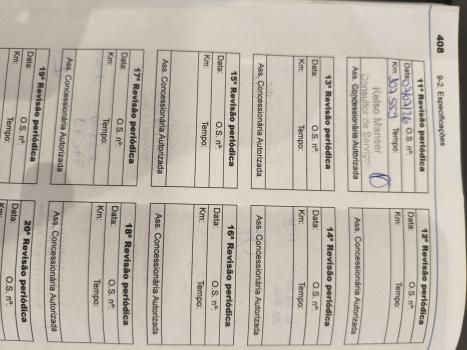 408
9-2. Especificações
11ª Revisão periódica
Data: O.S. nº:
Km: 109 559 Tempo:
Kelso Manser
Consultor de Serviços
Ass. Concessionária Autorizada
12ª Revisão periódica
Data: O.S. nº:
Km: Tempo:
Ass. Concessionária Autorizada
13ª Revisão periódica
Data: O.S. nº:
Km: Tempo:
Ass. Concessionária Autorizada
14ª Revisão periódica
Data: O.S. nº:
Km: Tempo:
Ass. Concessionária Autorizada
15ª Revisão periódica
Data: O.S. nº:
Km: Tempo:
Ass. Concessionária Autorizada
16ª Revisão periódica
Data: O.S. nº:
Km: Tempo:
Ass. Concessionária Autorizada
17ª Revisão periódica
Data: O.S. nº:
Km: Tempo:
Ass. Concessionária Autorizada
18ª Revisão periódica
Data: O.S. nº:
Km: Tempo:
Ass. Concessionária Autorizada
19ª Revisão periódica
Data: O.S. nº:
Km: Tempo:
20ª Revisão periódica
Data: O.S. nº:
Km: Tempo: